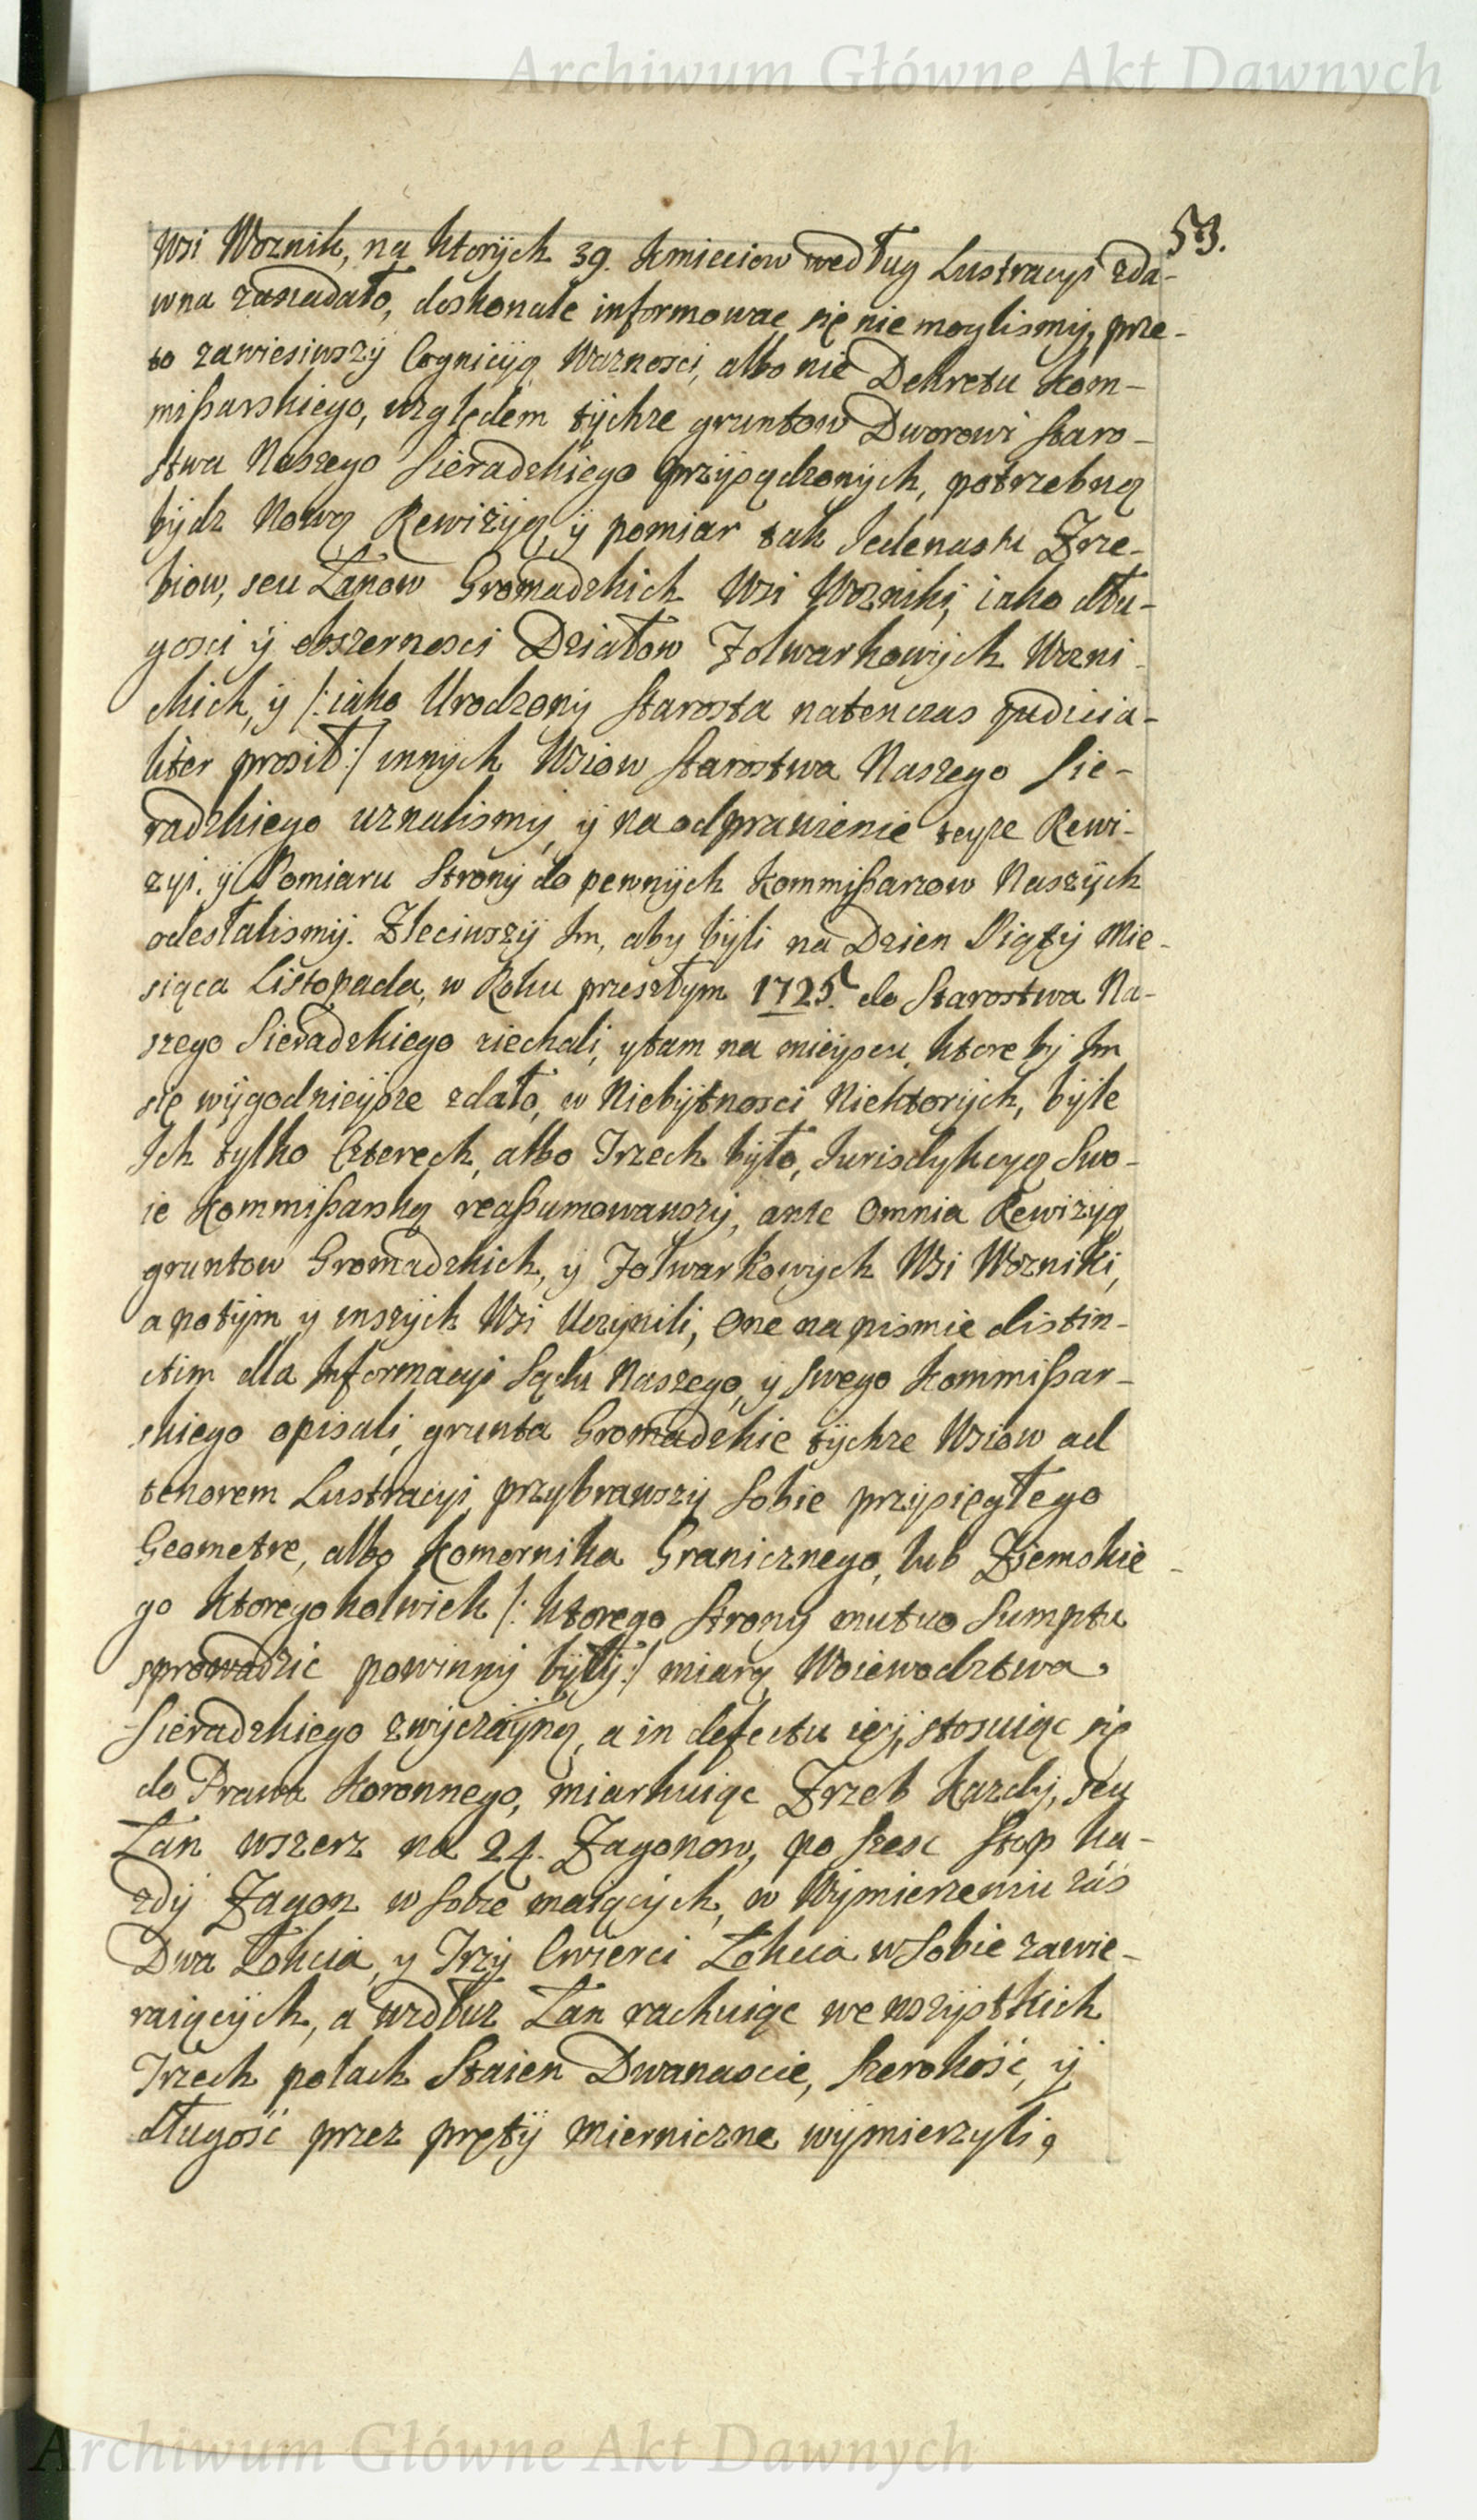 Archiwum Główne Akt Dawnych
53.
Wsi Woznik, na ktorÿch 39. Kmieciow według Lustracyi zda-
wna zasiadało, doskonale informowac się nie moglismÿ, prze-
to zawiesiwszÿ Cognicÿą Wazności, albo nie Dekretu Kom-
mißarskiego, względem tÿchze gruntow Dworowi Staro-
stwa Naszego Sieradzkiego przÿsądzonÿch, potrzebną
bÿdz Nową Rewizÿą, ÿ pomiar tak Jedenastu Zrze-
biow, seu Łanow Gromadzkich Wsi Wozniki, iako dłu-
gosci ÿ obszernosci Działow Folwarkowÿch Wozni-
ckich, ÿ /: iako Urodzonÿ Starosta natenczas judicia-
liter prosił :/ innych Wsiow Starostwa Naszego Sie-
radzkiego uznalismÿ, ÿ na odprawienie teyze Rewi-
zyi, ÿ Pomiaru Stronÿ do pewnÿch Kommißarzow Naszÿch
odesłalismÿ. Zleciwszÿ Im, aby bÿli na Dzien Piątÿ Mie-
siąca Listopada, w Roku przeszłym 1725. do Starostwa Na-
szego Sieradzkiego ziechali, y tam na mieÿscu, ktore bÿ Im
się wÿgodnieÿsze zdało, w Niebÿtnosci Niektorÿch, bÿle
Ich tylko Czterech, albo Trzech bÿło, Jurisdykcyą Swo-
ie Kommißarską reaßumowawszÿ, ante Omnia Rewizyą
gruntow Gromadzkich, y Folwarkowych Wsi Wozniki,
a potÿm y inszÿch Wsi Uczynili, One na pismie distin-
ctim dla Informacyi Sądu Naszego, y swego Kommißar-
skiego opisali, grunta Gromadzkie tÿchze Wsiow ad
tenorem Lustracyi, przybrawszÿ Sobie przÿsięgłego
Geometre, albo Komornika Granicznego, lub Ziemskie-
go ktoregokolwiek /: ktorego Strony mutuo Sumptu
sprowadzic powinnÿ bÿłÿ :/ miarą Woiewodztwa
Sieradzkiego zwÿczaÿną, a in defectu ieÿ, stosuiąc się
do Prawa Koronnego, miarkuiąc Zrzeb kazdÿ, seu
Łan wszerz na 24. Zagonow, po szesc Stop ka-
zdÿ Zagon w Sobie maiącÿch, w Wÿmierzeniu zaś
Dwa Łokcia, y Trzÿ Cwierci Łokcia w Sobie zawie-
raiącÿch, a wzdłuz Łan rachuiąc we wszÿstkich
Trzech polach Staien Dwanascie, Szerokość, ÿ
długość przez prętÿ Miernicznę wÿmierzyli,
Archiwum Główne Akt Dawnych